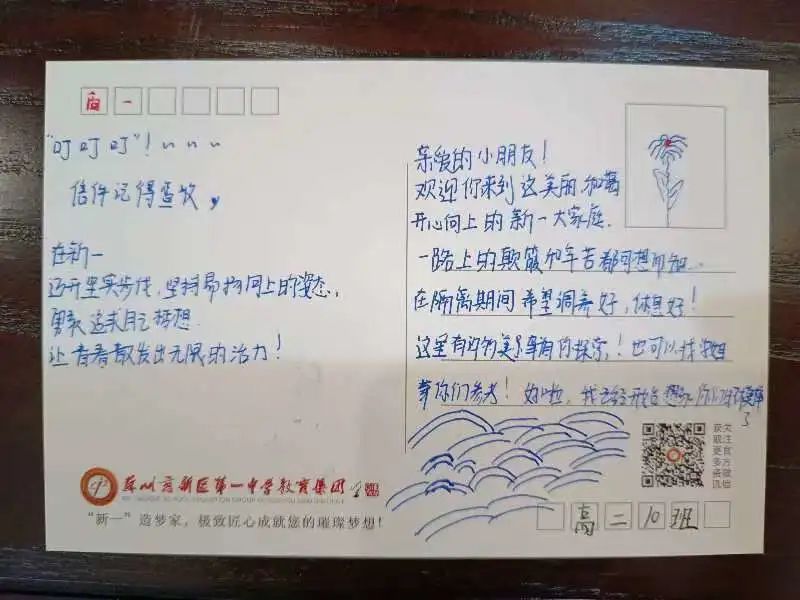 高一
"叮叮叮"！~ ~ ~
信件记得查收，
在新一
迈开坚实步伐，坚持昂扬向上的姿态，
勇敢追求自己梦想.
让青春散发出无限的活力！
亲爱的小朋友！
欢迎你来到这美丽、和蔼
开心向上的新一大家庭.
一路上的颠簸和辛苦都可想而知...
在隔离期间希望调养好，休息好！
这里有的美景等你探索，！也可以找
等你们参考！好啦，我已经开始想象你们
了
苏州高新区第一中学教育集团
"新一"造梦家，极致匠心成就您的璀璨梦想！
关注官方微信
获取更多资讯
高二10班